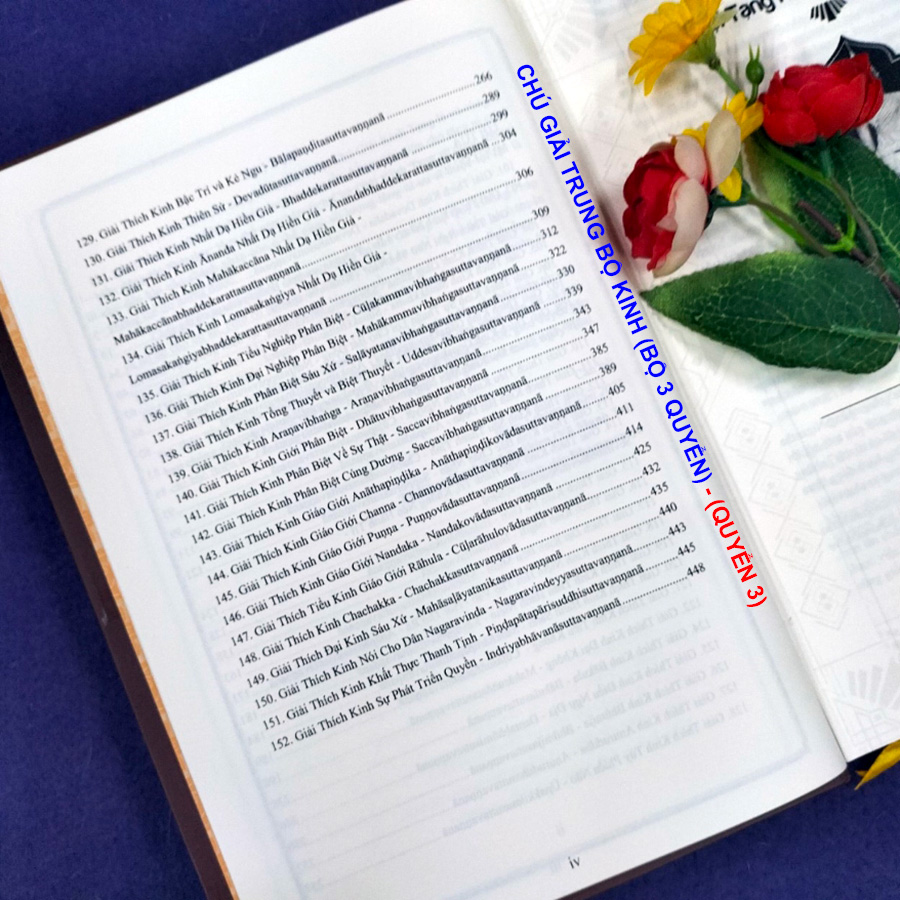 129. Giải Thích Kinh Bậc Trí và Kẻ Ngu - Bālapaṇḍitasuttavaṇṇanā ........ 266
130. Giải Thích Kinh Thiên Sứ - Devadūtasuttavaṇṇanā ........ 289
131. Giải Thích Kinh Nhất Dạ Hiền Giả - Bhaddekarattasuttavaṇṇanā ........ 299
132. Giải Thích Kinh Ānanda Nhất Dạ Hiền Giả - Ānandabhaddekarattasuttavaṇṇanā .... 304
133. Giải Thích Kinh Mahākaccāna Nhất Dạ Hiền Giả -
Mahākaccānabhaddekarattasuttavaṇṇanā ........ 306
134. Giải Thích Kinh Lomasakaṅgiya Nhất Dạ Hiền Giả -
Lomasakaṅgiyabhaddekarattasuttavaṇṇanā ........ 309
135. Giải Thích Kinh Tiểu Nghiệp Phân Biệt - Cūḷakammavibhaṅgasuttavaṇṇanā ........ 312
136. Giải Thích Kinh Đại Nghiệp Phân Biệt - Mahākammavibhaṅgasuttavaṇṇanā ........ 322
137. Giải Thích Kinh Phân Biệt Sáu Xứ - Saḷāyatanavibhaṅgasuttavaṇṇanā ........ 330
138. Giải Thích Kinh Tổng Thuyết và Biệt Thuyết - Uddesavibhaṅgasuttavaṇṇanā ........ 339
139. Giải Thích Kinh Araṇavibhaṅga - Araṇavibhaṅgasuttavaṇṇanā ........ 343
140. Giải Thích Kinh Giới Phân Biệt - Dhātuvibhaṅgasuttavaṇṇanā ........ 347
141. Giải Thích Kinh Phân Biệt Về Sự Thật - Saccavibhaṅgasuttavaṇṇanā ........ 385
142. Giải Thích Kinh Phân Biệt Cúng Dường - Saccavibhaṅgasuttavaṇṇanā ........ 389
143. Giải Thích Kinh Giáo Giới Anāthapiṇḍika - Anāthapiṇḍikovādasuttavaṇṇanā ........ 405
144. Giải Thích Kinh Giáo Giới Channa - Channovādasuttavaṇṇanā ........ 411
145. Giải Thích Kinh Giáo Giới Puṇṇa - Puṇṇovādasuttavaṇṇanā ........ 414
146. Giải Thích Kinh Giáo Giới Nandaka - Nandukovādasuttavaṇṇanā ........ 425
147. Giải Thích Tiểu Kinh Giáo Giới Rāhula - Cūḷarāhulovādasuttavaṇṇanā ........ 432
148. Giải Thích Kinh Chachakka - Chachakkasuttavaṇṇanā ........ 435
149. Giải Thích Đại Kinh Sáu Xứ - Mahāsaḷāyatanikasuttavaṇṇanā ........ 440
150. Giải Thích Kinh Nói Cho Dân Nagaravinda - Nagaravindeyyasuttavaṇṇanā ........ 443
151. Giải Thích Kinh Khất Thực Thanh Tịnh - Piṇḍapātapārisuddhisuttavaṇṇanā ........ 445
152. Giải Thích Kinh Sự Phát Triển Quyền - Indriyabhāvanāsuttavaṇṇanā ........ 448
iv
CHÚ GIẢI TRUNG BỘ KINH (BỘ 3 QUYỂN) - (QUYỂN 3)